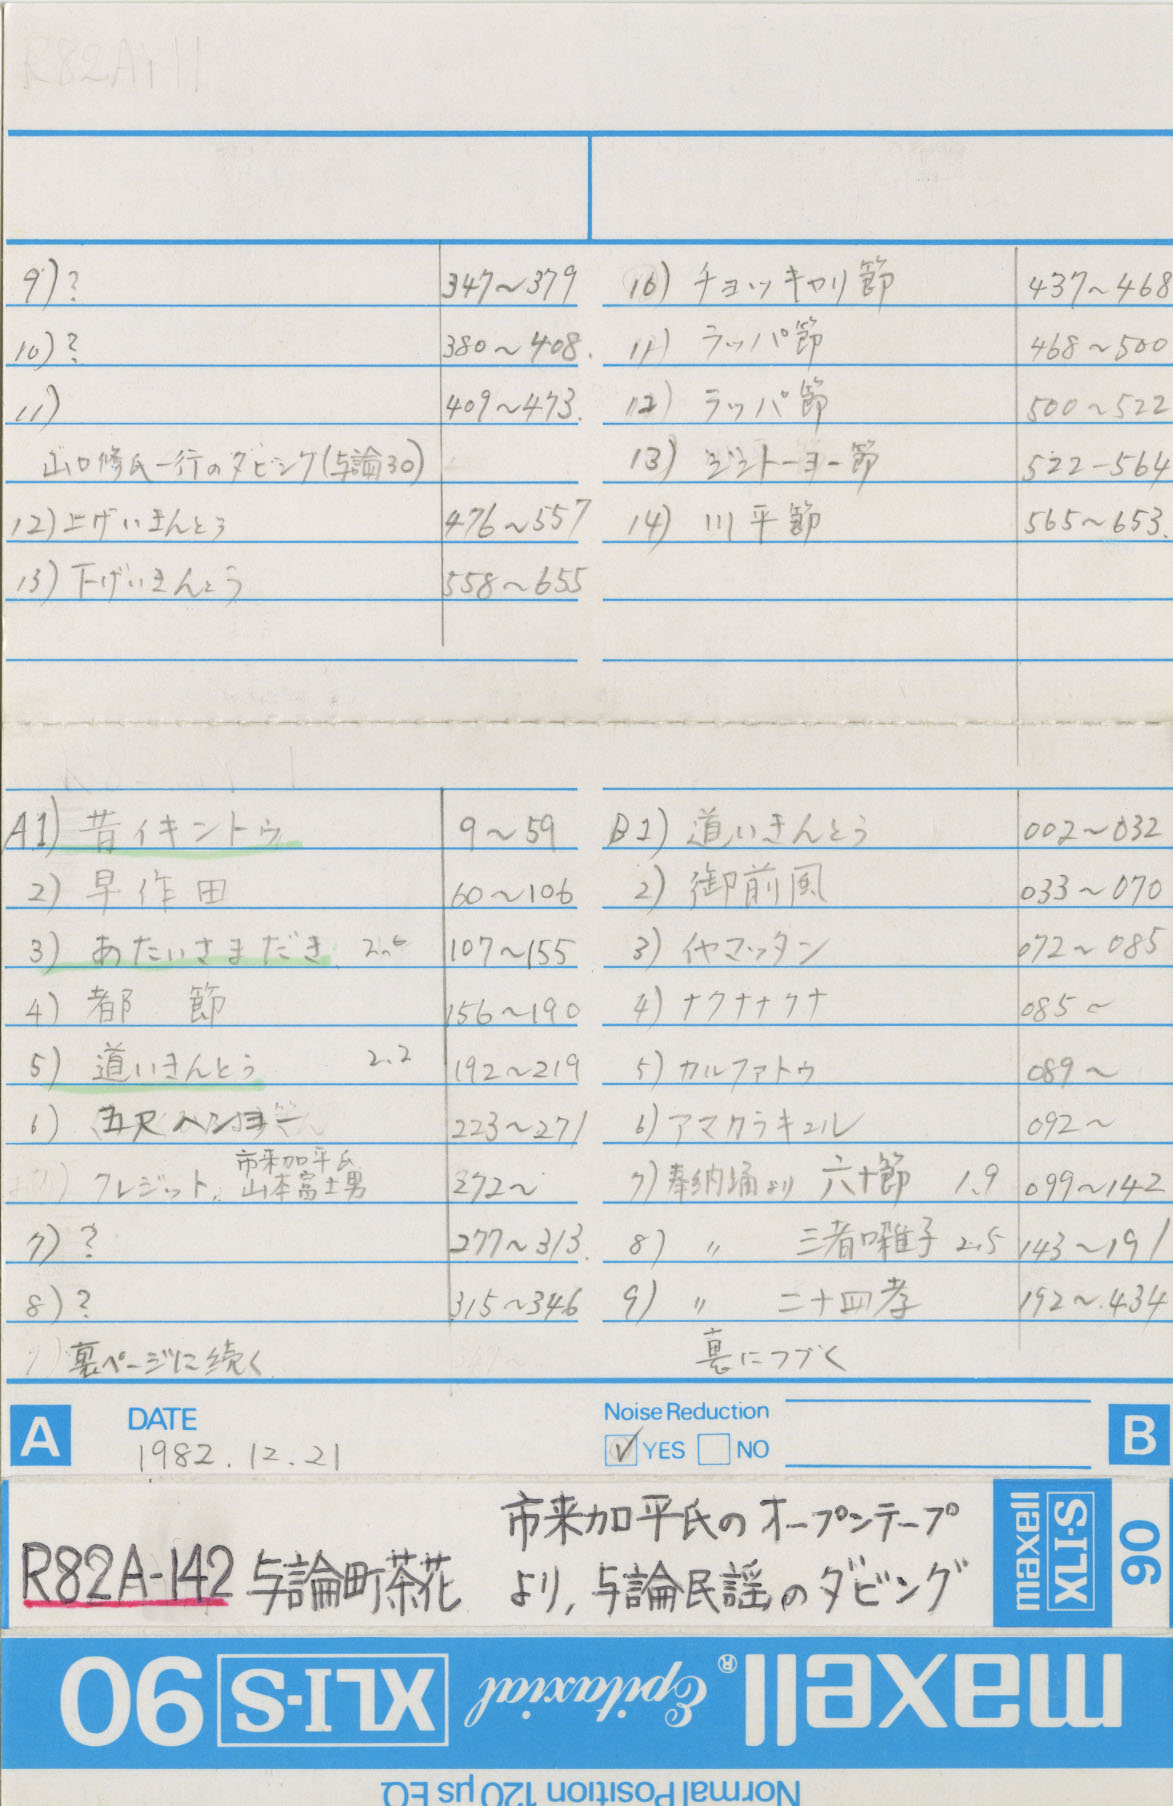 R82A111
9) ? 347〜379
10) ? 380〜408.
11) 409〜473.
山口修氏一行のダビング(与論30)
12) 上げいきんとう 476〜557
13) 下げいきんとう 558〜655
10) チョッキャリ節 437〜468
11) ラッパ節 468〜500
12) ラッパ節 500〜522
13) シシトーヨー節 522-564
14) 川平節 565〜653.
A1) 昔イキントゥ 9〜59
2) 早作田 60〜106
3) あたいさまだき 107〜155
4) 都 節 156〜190
5) 道いきんとう 2.2 192〜219
6) 223〜271
クレジット, 市来加平氏 272〜
山本富士男
7) ? 277〜313.
8) ? 315〜346
裏ページに続く
B1) 道いきんとう 002〜032
2) 御前風 033〜070
3) イヤマッタン 072〜085
4) ナクナナクナ 085〜
5) カルファトゥ 089〜
6) アマクラキュル 092〜
7) 奉納踊より 六十節 1.9 099〜142
8) 〃 三者囃子 2.5 143〜191
9) 〃 二十四孝 192〜434
裏につづく
A DATE
1982.12.21
Noise Reduction
✓ YES NO
B
R82A-142 与論町茶花
市来加平氏のオープンテープ
より, 与論民謡のダビング
maxell XLI-S 90
maxell® Epitaxial XLI-S 90
Normal Position 120μs EQ